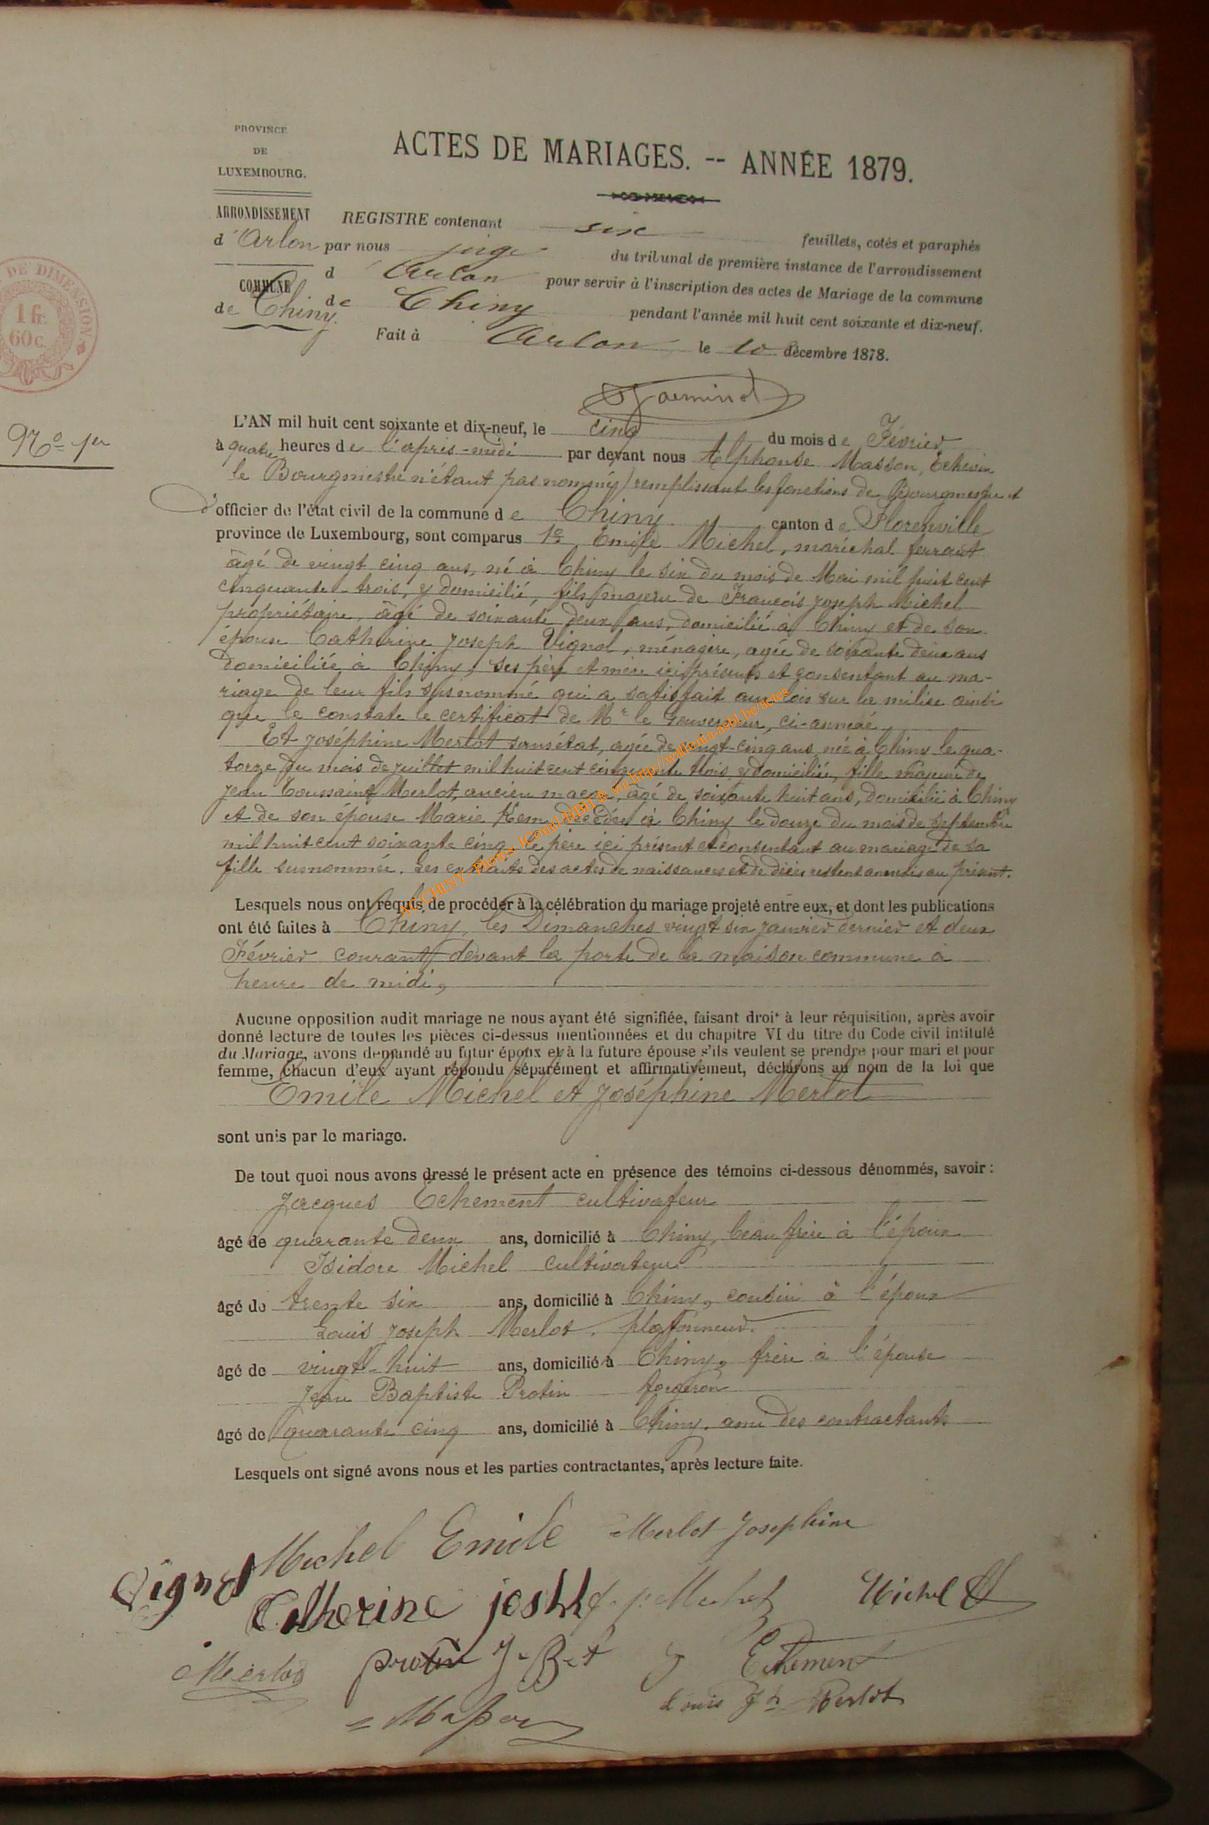 PROVINCE
DE
LUXEMBOURG.
ACTES DE MARIAGES. -- ANNÉE 1879.
ARRONDISSEMENT
d'Arlon
COMMUNE
de Chiny.
REGISTRE contenant six feuillets, cotés et paraphés
par nous juge du tribunal de première instance de l'arrondissement
d'Arlon pour servir à l'inscription des actes de Mariage de la commune
de Chiny pendant l'année mil huit cent soixante et dix-neuf.
Fait à Arlon le 10 décembre 1878.
DE DIMENSION
1 fr.
60 c.
No 1er
L'AN mil huit cent soixante et dix-neuf, le cinq du mois de Février
à quatre heures de l'après-midi par devant nous Alphonse Masson, Echevin
le Bourgmestre n'étant pas nommé) remplissant les fonctions de Bourgmestre et
d'officier de l'état civil de la commune de Chiny canton de Florenville
province de Luxembourg, sont comparus 1o Emile Michel, maréchal ferrant
âgé de vingt cinq ans, né à Chiny le six du mois de Mai mil huit cent
cinquante-trois, y domicilié, fils majeur de François Joseph Michel
propriétaire, âgé de soixante deux ans, domicilié à Chiny et de son
épouse Catherine Joseph Vignol, ménagère, agée de soixante deux ans
domiciliée à Chiny, ses père et mère ici présents et consentant au ma-
riage de leur fils susnommé qui a satisfait aux lois sur la milice ainsi
que le constate le certificat de Mr le Gouverneur, ci-annexé
Et Joséphine Merlot sans état, agée de vingt-cinq ans, née à Chiny le qua-
torze du mois de juillet mil huit cent cinquante trois, y domiciliée, fille majeure de
Jean Toussaint Merlot, ancien maçon, âgé de soixante huit ans, domicilié à Chiny
et de son épouse Marie décédée à Chiny le douze du mois de septembre
mil huit cent soixante cinq le père ici présent et consentant au mariage de sa
fille surnommée. Les extraits des actes de naissances et de décès restent annexés au présent.
Lesquels nous ont requis de procéder à la célébration du mariage projeté entre eux, et dont les publications
ont été faites à Chiny, les Dimanches vingt six janvier dernier et deux
Février courant, devant la porte de la maison commune à
heure de midi,
Aucune opposition audit mariage ne nous ayant été signifiée, faisant droit à leur réquisition, après avoir
donné lecture de toutes les pièces ci-dessus mentionnées et du chapitre VI du titre du Code civil intitulé
du Mariage, avons demandé au futur époux et à la future épouse s'ils veulent se prendre pour mari et pour
femme, Chacun d'eux ayant répondu séparément et affirmativement, déclarons au nom de la loi que
Emile Michel et Joséphine Merlot
sont unis par le mariage.
De tout quoi nous avons dressé le présent acte en présence des témoins ci-dessous dénommés, savoir :
Jacques Echement cultivateur
âgé de quarante deux ans, domicilié à Chiny, beau frère à l'époux
Isidore Michel cultivateur
âgé de trente six ans, domicilié à Chiny, cousin à l'époux
Louis Joseph Merlot. plafonneur.
âgé de vingt-huit ans, domicilié à Chiny, frère à l'épouse
Jean Baptiste Protin forgeron
âgé de quarante cinq ans, domicilié à Chiny, ami des contractants
Lesquels ont signé avons nous et les parties contractantes, après lecture faite.
Michel Emile Merlot Josephine
Vignol
Catherine Michel
Merlot protin J-Bt J Echement
Louis Jh Merlot